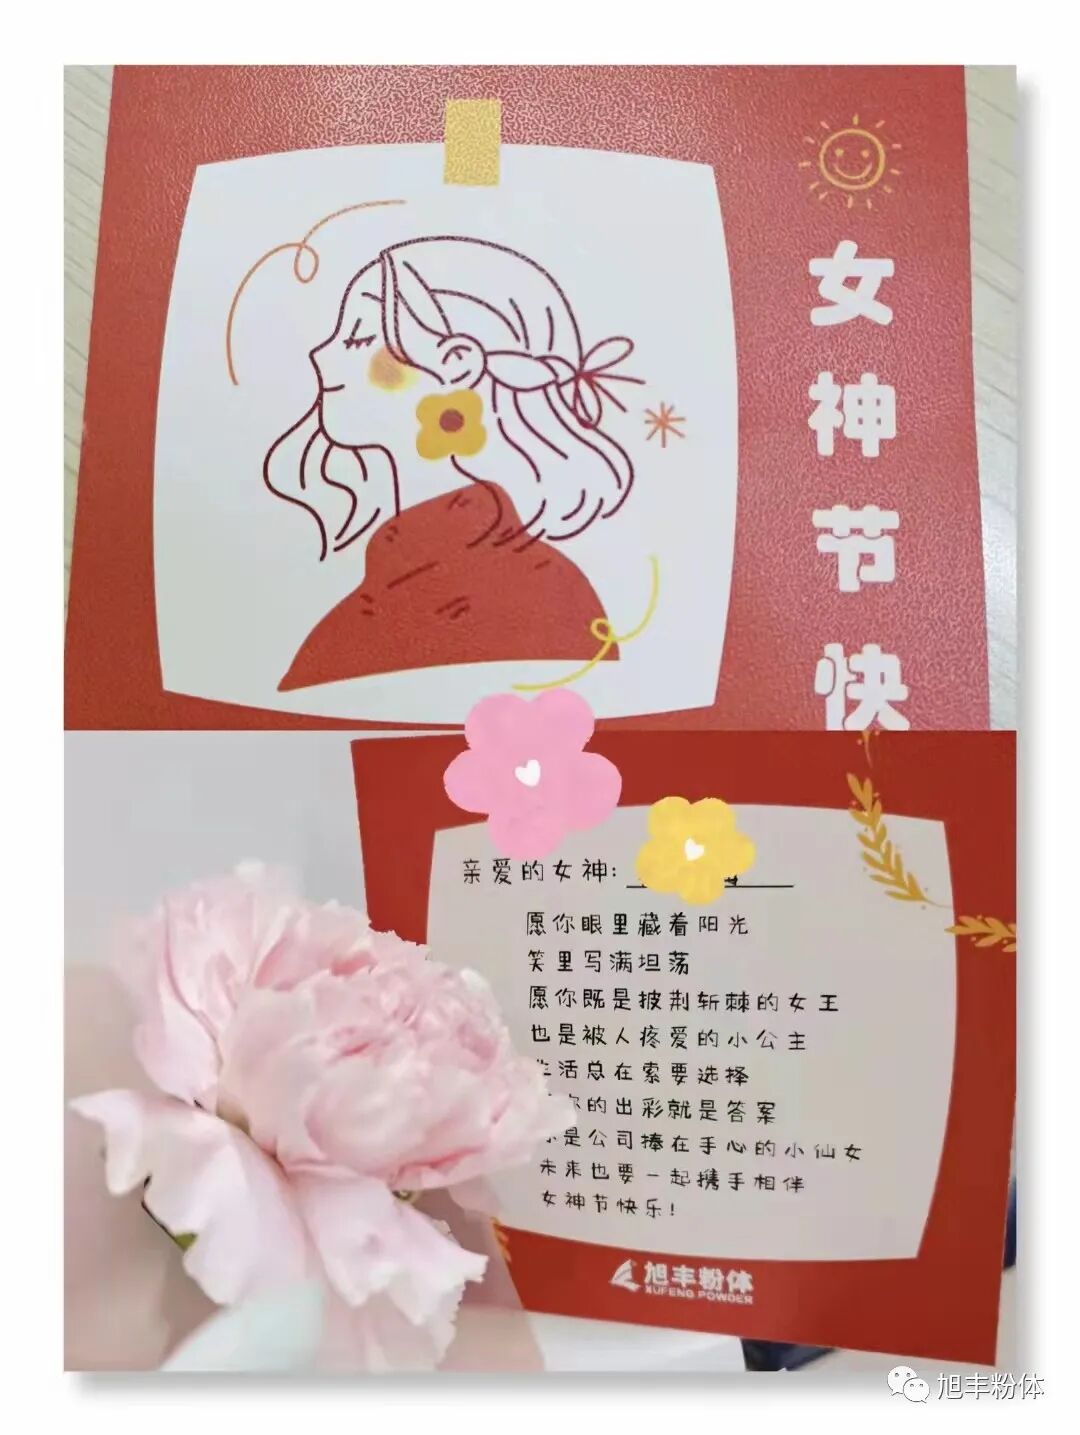 女神节快
亲爱的女神:
愿你眼里藏着阳光
笑里写满坦荡
愿你既是披荆斩棘的女王
也是被人疼爱的小公主
生活总在索要选择
你的出彩就是答案
你是公司捧在手心的小仙女
未来也要一起携手相伴
女神节快乐!
旭丰粉体
XUFENG POWDER
旭丰粉体